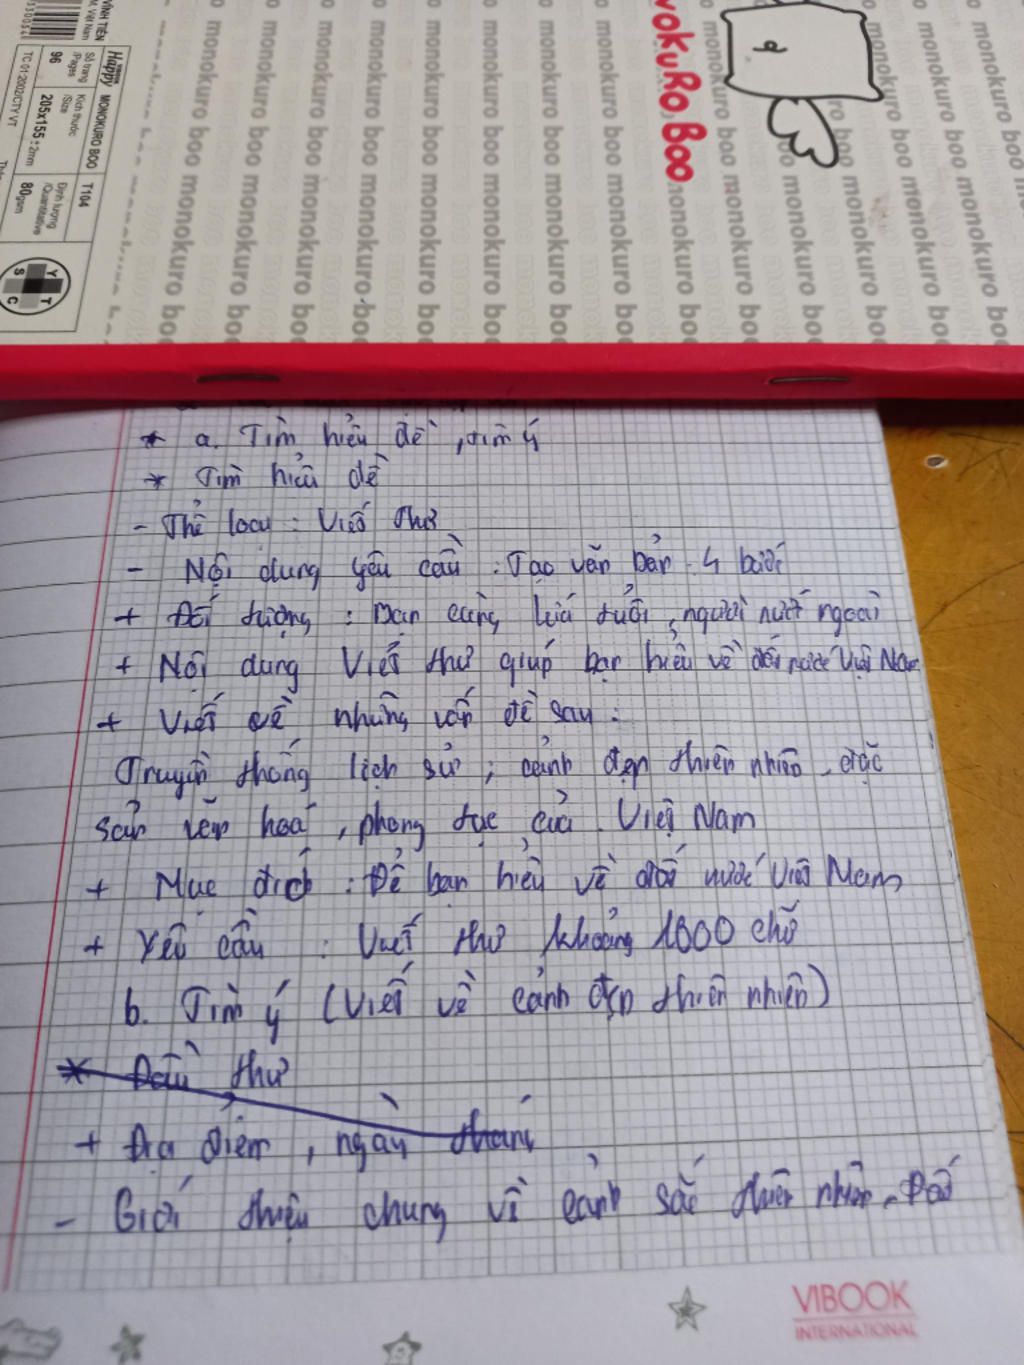 VĨNH TIẾN
Happy MONOKURO BOO T104
Số trang /Pages Kích thước /Size Định lượng /Quantitative
96 205x155±2mm 80gsm
TC 01:2002/CTY VT
Y T S C
monokuro boo monokuro boo
BOO
* a. Tìm hiểu đề, tìm ý
* Tìm hiểu đề
- Thể loại : Viết thư
- Nội dung yêu cầu : Tạo văn bản 4 bước
+ Đối tượng : Bạn cùng lứa tuổi, người nước ngoài
+ Nội dung Viết thư giúp bạn hiểu về đất nước Việt Nam
+ Viết về những vấn đề sau :
Truyền thống lịch sử ; cảnh đẹp thiên nhiên, đặc
sản văn hoá, phong tục của Việt Nam
+ Mục đích : Để bạn hiểu về đất nước Việt Nam
+ Yêu cầu : Viết thư khoảng 1000 chữ
b. Tìm ý (Viết về cảnh đẹp thiên nhiên)
* Đầu thư
+ Địa điểm, ngày tháng
- Giới thiệu chung về cảnh sắc thiên nhiên Đất
VIBOOK
INTERNATIONAL